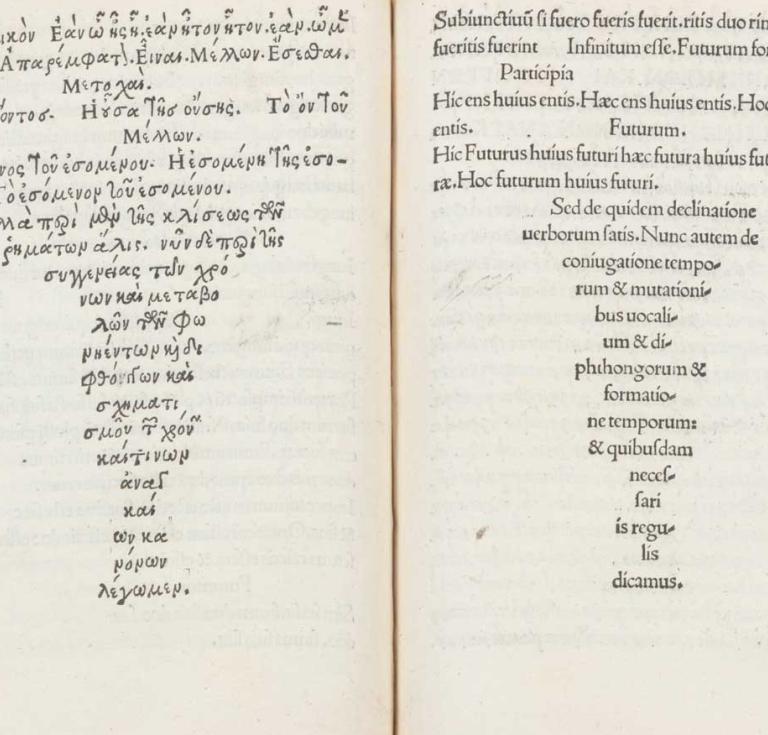 ικὸν Ἐὰν ὦ ᾖς ᾖ. ἐὰν ἦτον ἦτον. ἐὰν ὦμ
Ἀπαρέμφατ. Εἶναι. Μέλλων. Ἔσεσθαι.
Μετοχαί.
όντος. Ἡ οὖσα τῆς οὔσης. Τὸ ὂν τοῦ
Μέλλων.
νος τοῦ ἐσομένου. Ἡ ἐσομένη τῆς ἐσο-
τὸ ἐσόμενον τοῦ ἐσομένου.
λλὰ περὶ μὲν τῆς κλίσεως τῶν
ῥημάτων ἅλις. νῦν δὲ περὶ τῆς
συγγενείας τῶν χρό
νων καὶ μεταβο
λῶν τῶν φω
νηέντων κὶ δι
φθόγγων καὶ
σχηματι
σμοῦ τ χρόν
καί τινων
ἀναγ
καί
ων κα
νόνων
λέγωμεν.
Subiunctiuū si fuero fueris fuerit.ritis duo rin
fueritis fuerint Infinitum esse. Futurum for
Participia
Hic ens huius entis. Hæc ens huius entis. Hoc
entis. Futurum.
Hic Futurus huius futuri hæc futura huius fut
ræ. Hoc futurum huius futuri.
Sed de quidem declinatione
uerborum satis. Nunc autem de
coniugatione tempo-
rum & mutationi-
bus uocali-
um & di-
phthongorum &
formatio-
ne temporum:
& quibusdam
neces-
sari
is regu-
lis
dicamus.